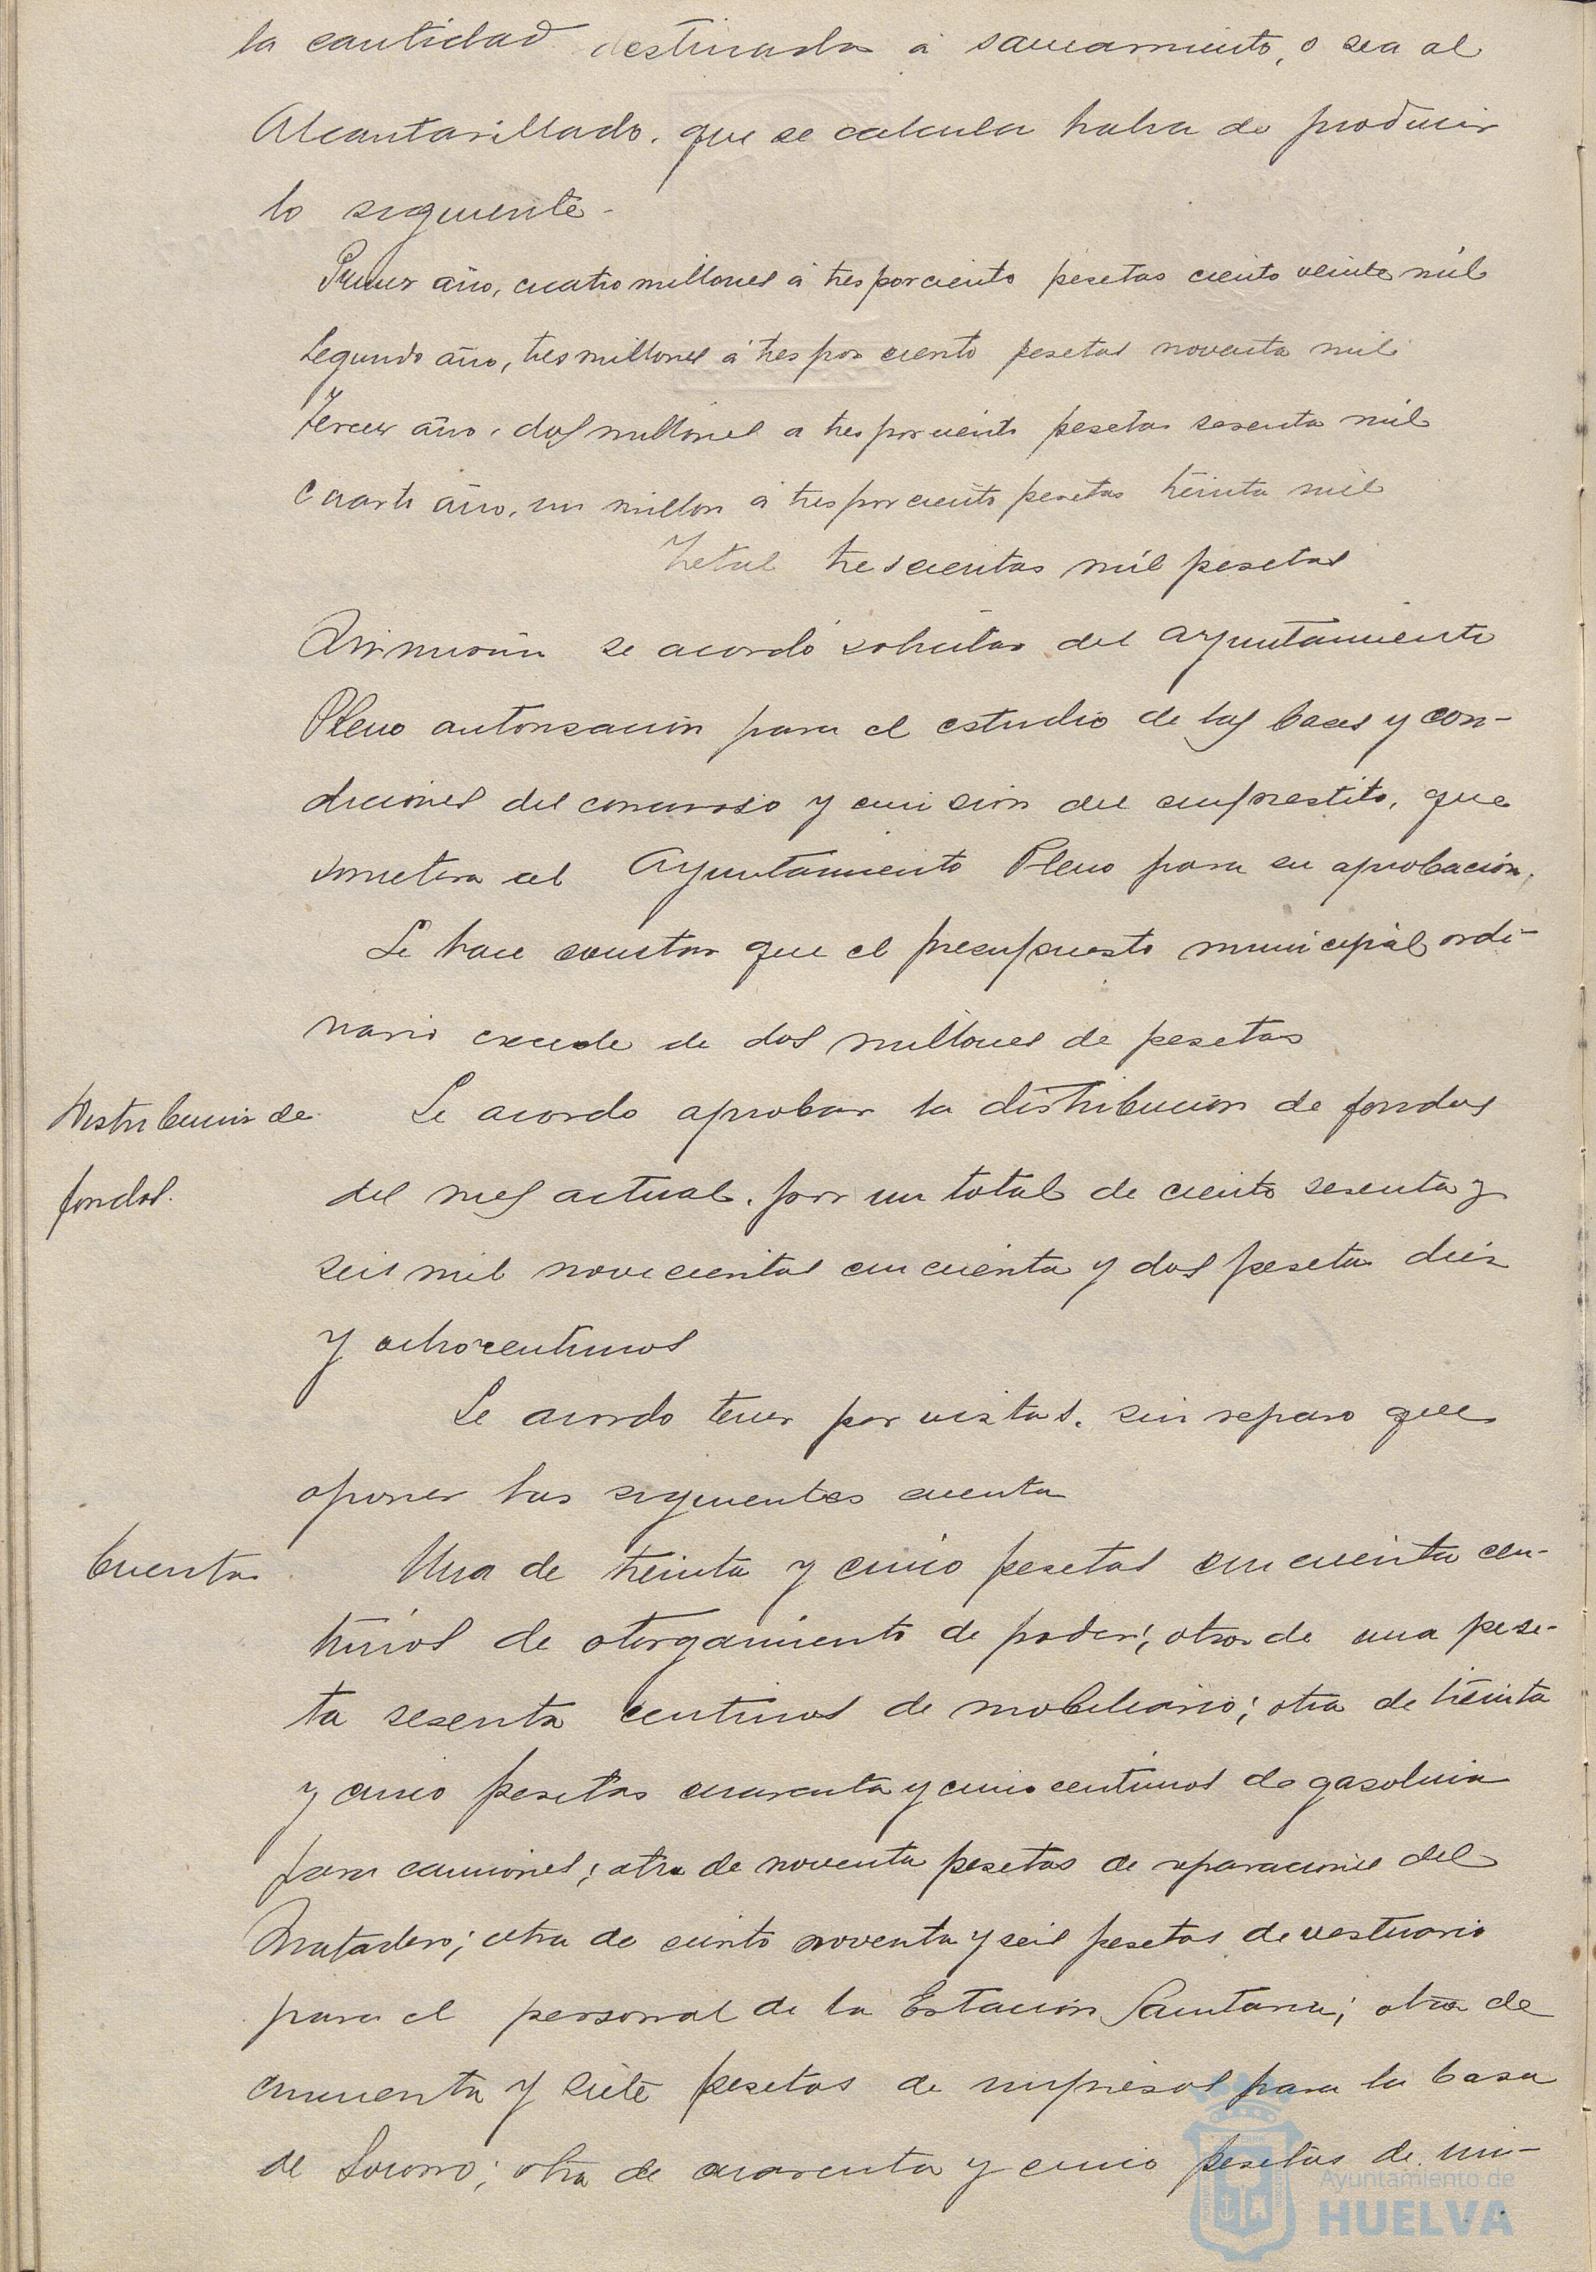 la cantidad destinada a saneamiento, o sea al
Alcantarillado, que se calcula habra de producir
lo siguiente.
Primer año, cuatro millones á tres por ciento pesetas ciento veinte mil
Segundo año, tres millones á tres por ciento pesetas noventa mil
Tercer año, dos millones a tres por ciento pesetas sesenta mil
Cuarto año, un millon á tres por ciento pesetas treinta mil
Total trescientas mil pesetas
Asimismo se acordó solicitar del Ayuntamiento
Pleno autorización para el estudio de las bases y con-
diciones del concurso y emision del emprestito, que
sometera al Ayuntamiento Pleno para su aprobación.
Se hace constar que el presupuesto municipal ordi-
nario excede de dos millones de pesetas
Distribucion de
fondos.
Se acordo aprobar la distribución de fondos
del mes actual, por un total de ciento sesenta y
seis mil novecientas cincuenta y dos peseta diez
y ocho centimos
Se acordo tener por vistas, sin reparo que
oponer las siguientes cuenta
Cuentas
Una de treinta y cinco pesetas cincuenta cen-
timos de otorgamiento de poder; otra de una pese-
ta sesenta centimos de mobiliario; otra de treinta
y cinco pesetas cuarenta y cinco centimos de gasolina
para camiones; otra de noventa pesetas de reparaciones del
Matadero; otra de ciento noventa y seis pesetas de vestuario
para el personal de la Estación Sanitaria; otra de
cincuenta y siete pesetas de impresos para la Casa
de Socorro; otra de cuarenta y cinco pesetas de im-
Ayuntamiento de
HUELVA